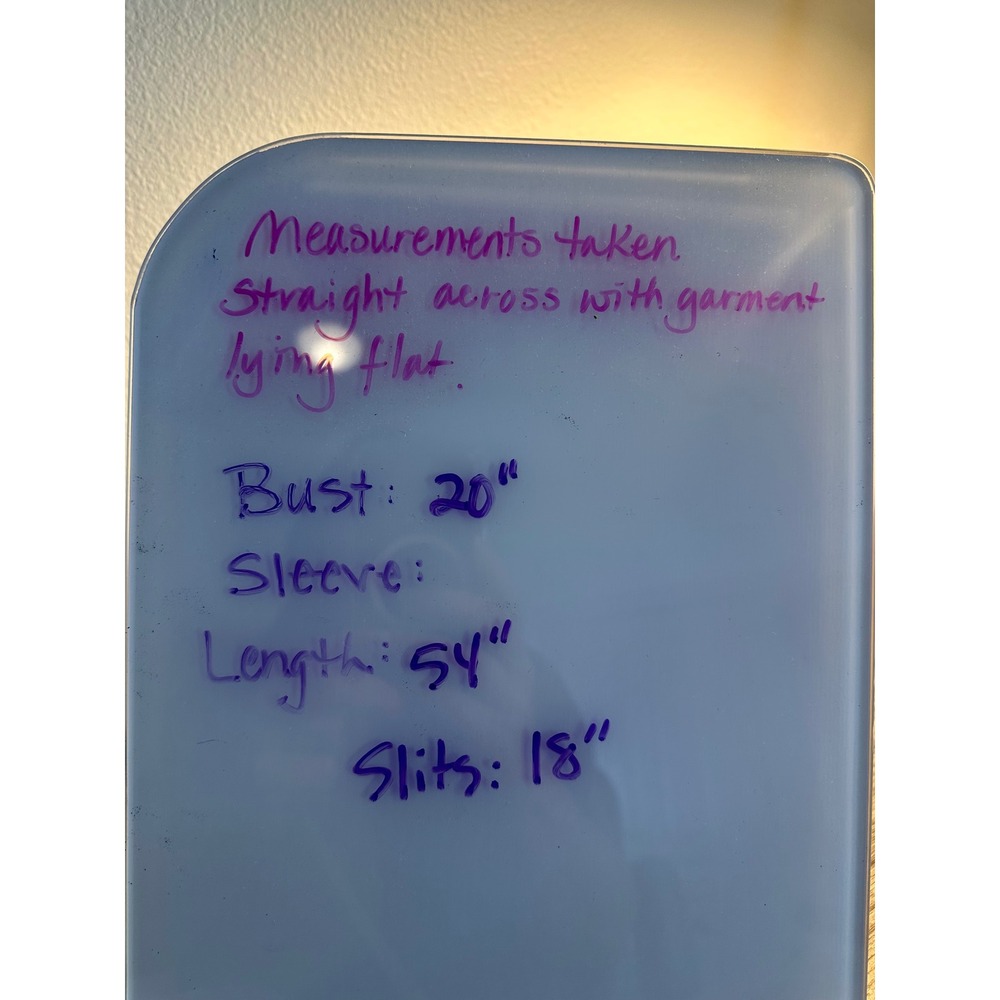 Measurements taken
straight across with garment
lying flat.
Bust: 20"
Sleeve:
Length: 54"
Slits: 18"